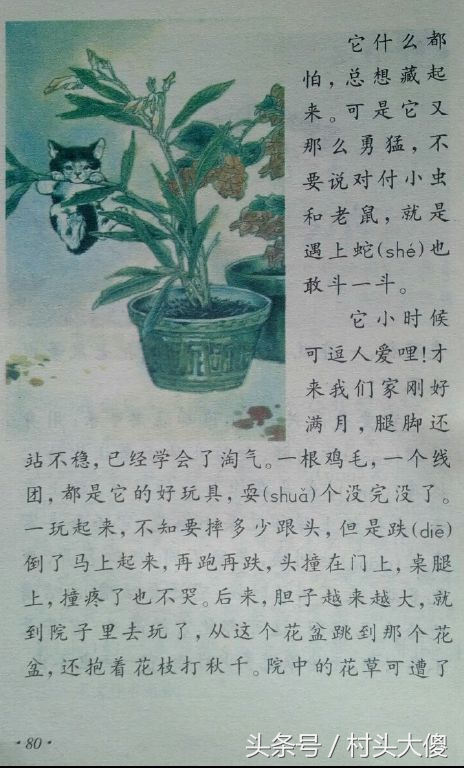 它什么都
怕，总想藏起
来。可是它又
那么勇猛，不
要说对付小虫
和老鼠，就是
遇上蛇(shé)也
敢斗一斗。
它小时候
可逗人爱哩！才
来我们家刚好
满月，腿脚还
站不稳，已经学会了淘气。一根鸡毛，一个线
团，都是它的好玩具，耍(shuǎ)个没完没了。
一玩起来，不知要摔多少跟头，但是跌(diē)
倒了马上起来，再跑再跌，头撞在门上，桌腿
上，撞疼了也不哭。后来，胆子越来越大，就
到院子里去玩了，从这个花盆跳到那个花
盆，还抱着花枝打秋千。院中的花草可遭了
·80·
头条号／村头大傻